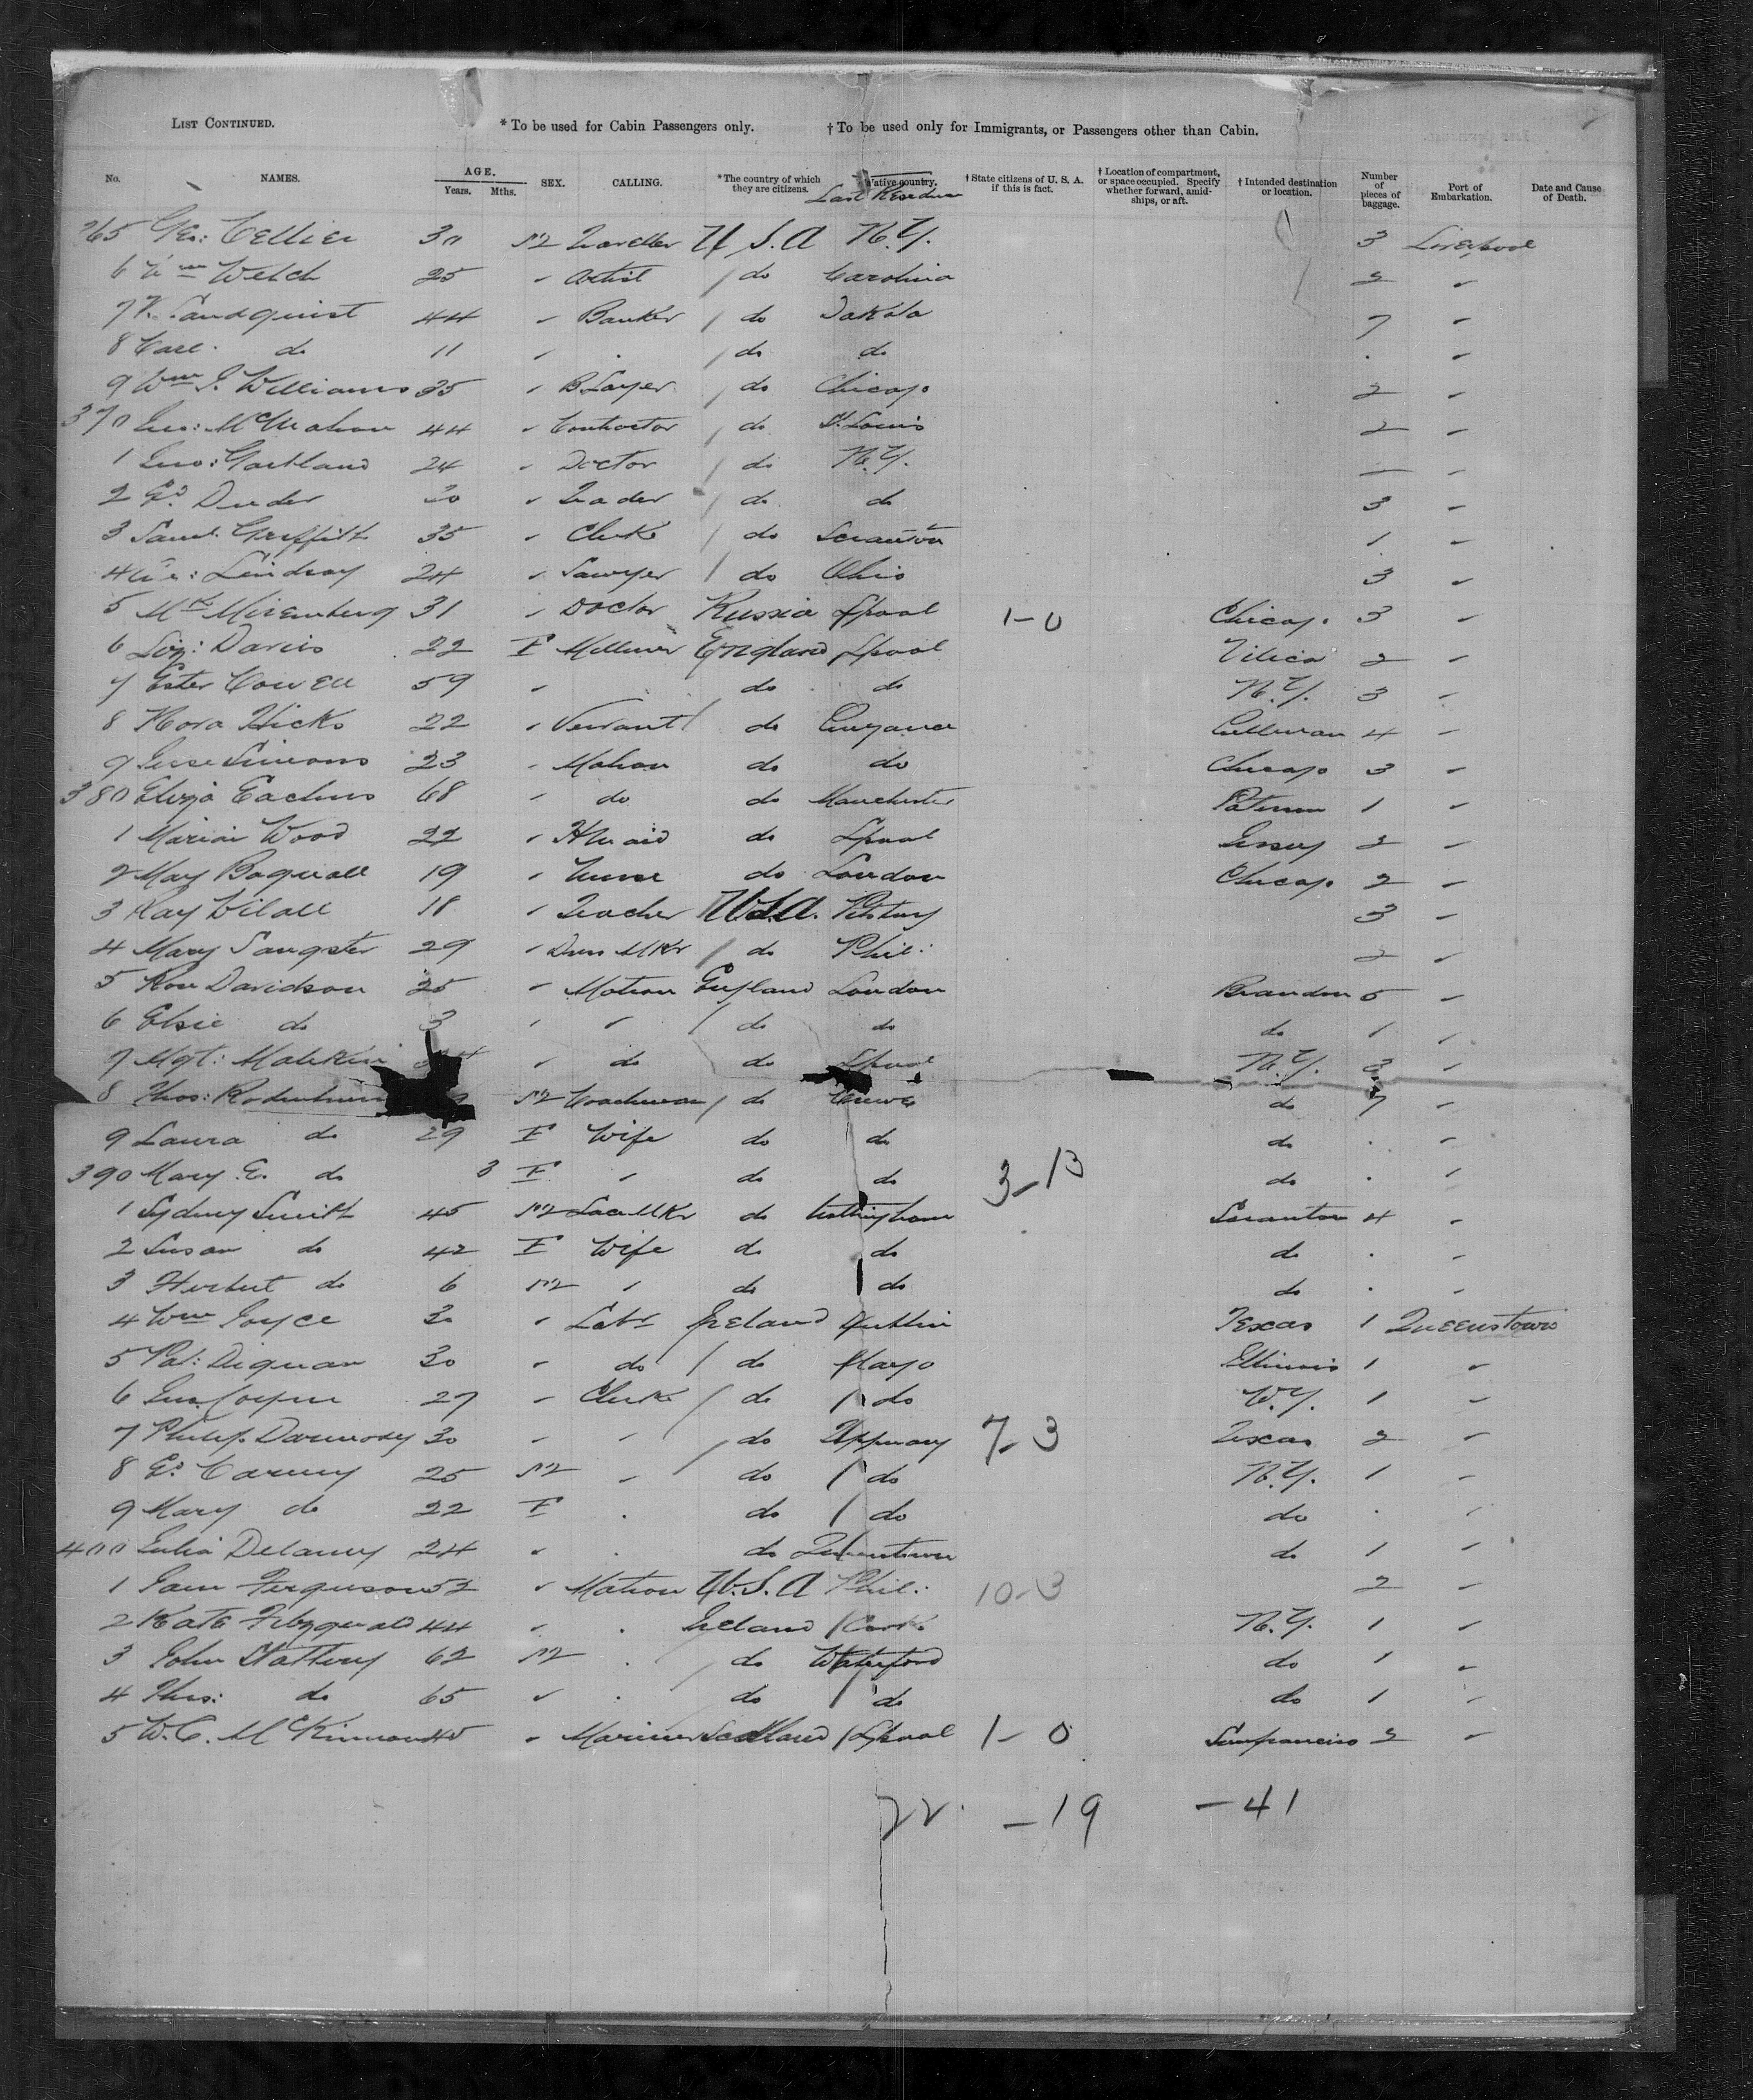 LIST CONTINUED. * To be used for Cabin Passengers only. † To be used only for Immigrants, or Passengers other than Cabin.
No. NAMES. AGE. Years. Mths. SEX. CALLING. *The country of which they are citizens. Native country. Last Residence † State citizens of U. S. A. if this is fact. † Location of compartment, or space occupied. Specify whether forward, amidships, or aft. † Intended destination or location. Number of pieces of baggage. Port of Embarkation. Date and Cause of Death.
365 Geo: Cellier 30 M Traveller U.S.A N.Y. 3 Liverpool
6 Wm Welch 25 " Artist / do Carolina 2 "
7 Sandquist 44 " Banker / do Dakota 7 "
8 Carl do 11 " . / do do . "
9 Wm J. Williams 35 " B Layer / do Chicago 2 "
370 Jno: McMahon 44 " Contractor / do St. Louis 2 "
1 Jno: Gartland 24 " Doctor / do N.Y. — "
2 Ed Duder 30 " Trader / do do 3 "
3 Saml. Griffith 35 " Clerk / do Scranton 1 "
4 Lindsay 24 " Sawyer / do Ohio 3 "
5 Mirenberg 31 " Doctor Russia Lpool 1-0 Chicago 3 "
6 Liz: Davies 22 F Milliner England Lpool Utica 2 "
7 Ester Cowell 59 " do do N.Y. 3 "
8 Nora Hicks 22 " Servant / do 4 "
9 Simons 23 " Matron do do Chicago 3 "
380 Eliza Eachus 68 " do do Manchester Paterson 1 "
1 Marion Wood 22 " H Maid do Lpool Jersey 2 "
2 May Bagnall 19 " Nurse do London Chicago 2 "
3 Kay 18 " Teacher U.S.A. Pitsburg 3 "
4 Mary Sangster 29 " Dress Mkr / do Phil: 2 "
5 Rose Davidson 25 " Matron England London Brandon 5 "
6 Elsie do 3 " " / do do do 1 "
7 Mgt: Malekin " do do Lpool N.Y. 3 "
8 Thos: M Coachman / do Crewe do 7 "
9 Laura do 29 F Wife do do do . "
390 Mary E. do 3 F " do do 3-13 do . "
1 Sydney Smith 45 M Lace Mkr do Nottingham Scranton 4 "
2 Susan do 42 F Wife do do do . "
3 Herbert do 6 M " do do do . "
4 Wm Joyce 30 " Labr Ireland Dublin Texas 1 Queenstown
5 Pat: Dignan 30 " do / do Mayo Illinois 1 "
6 27 " Clerk / do do N.Y. 1 "
7 Philip Darmody 30 " " / do Tipperary 7-3 Texas 2 "
8 Ed Carney 25 M " do do N.Y. 1 "
9 Mary do 22 F . do do do . "
400 Julia Delaney 24 " . do Queenstown do 1 "
1 Jane Ferguson 52 " Matron U.S.A Phil: 10-3 2 "
2 Kate Fitzgerald 44 " . Ireland Cork N.Y. 1 "
3 John Slattery 62 M . / do Waterford do 1 "
4 Thos: do 65 " . do do do 1 "
5 W.C. McKinnon 45 " Mariner Scotland Lpool 1-0 Sanfrancisco 2 "
22 - 19 - 41